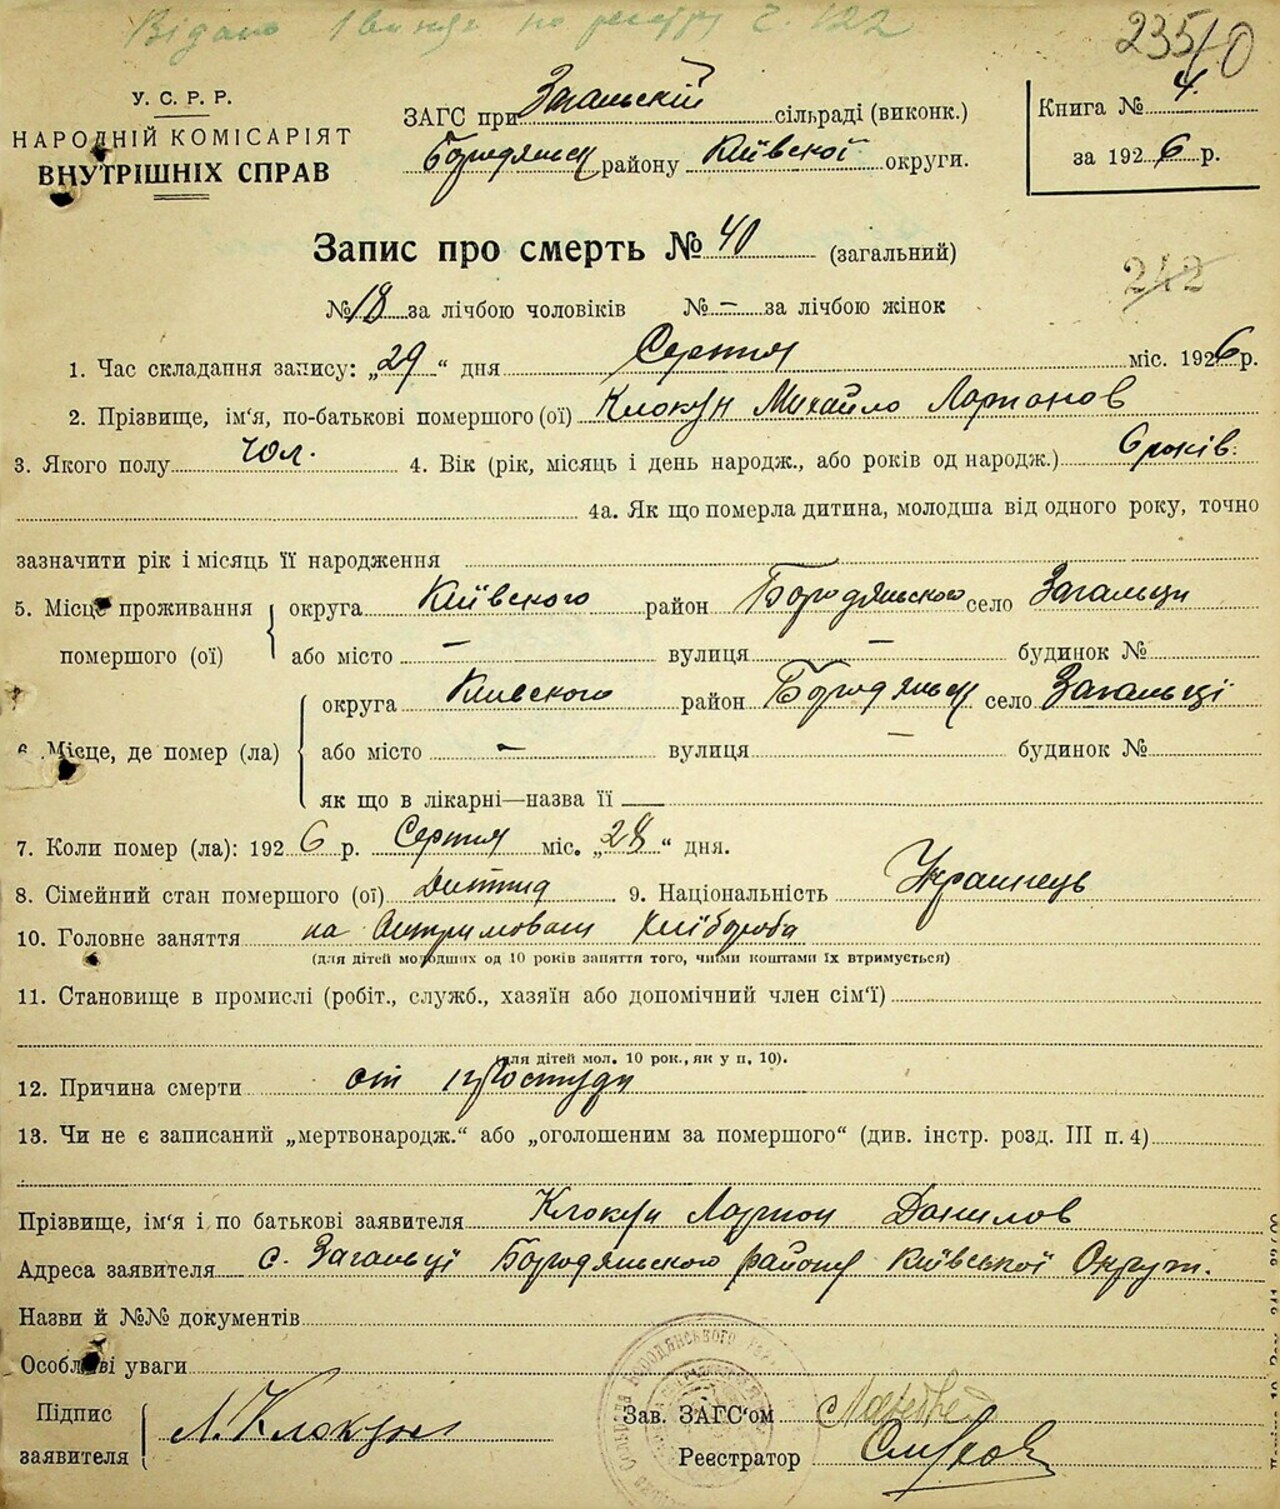 Відано 1 вик по реєстру č. 122
235/0
У. С. Р. Р.
НАРОДНІЙ КОМІСАРІЯТ
ВНУТРІШНІХ СПРАВ
ЗАГС при Загальскій сільраді (виконк.)
Бородянськ району Київскої округи.
Книга № 4.
за 1926 р.
Запис про смерть № 40 (загальний)
242
№ 18 за лічбою чоловіків № – за лічбою жінок
1. Час складання запису: „29“ дня Серпня міс. 1926 р.
2. Прізвище, ім‘я, по-батькові помершого (ої) Клокун Михайло Ларионов
3. Якого полу чол. 4. Вік (рік, місяць і день народж., або років од народж.) 6 років.
4а. Як що померла дитина, молодша від одного року, точно
зазначити рік і місяць її народження
5. Місце проживання помершого (ої) округа Київского район Бородяньского село Загальци
або місто – вулиця – будинок №
6. Місце, де помер (ла) округа Киевского район Бородяньск село Загальці
або місто – вулиця – будинок №
як що в лікарні—назва її —
7. Коли помер (ла): 1926 р. Серпня міс. „28“ дня.
8. Сімейний стан помершого (ої) Дитина 9. Національність Украинець
10. Головне заняття на Хлібороба
(для дітей молодших од 10 років заняття того, чиїми коштами їх втримується)
11. Становище в промислі (робіт., служб., хазяїн або допомічний член сім‘ї)
(для дітей мол. 10 рок., як у п. 10).
12. Причина смерти от простуди
13. Чи не є записаний „мертвонародж.“ або „оголошеним за помершого“ (див. інстр. розд. III п. 4)
Прізвище, ім‘я і по батькові заявителя Клокун Ларион Данилов
Адреса заявителя с. Загальці Бородяньского району Київської Округи.
Назви й №№ документів
Особливі уваги
Підпис заявителя Л. Клокун
Зав. ЗАГС‘ом
Реєстратор